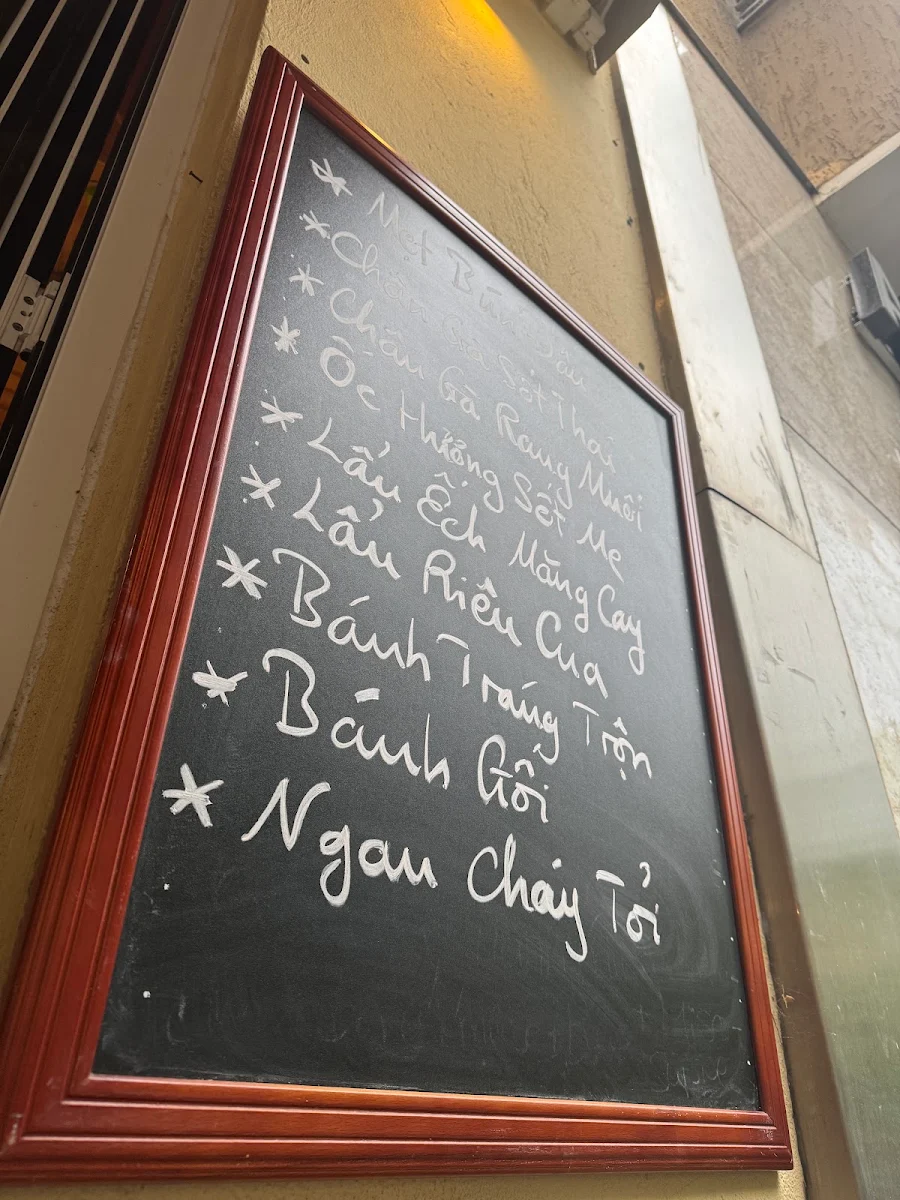 * Mẹt Bún Đậu
* Chân Gà Sốt Thái
* Chân Gà Rang Muối
* Ốc Hương Sốt Me
* Lẩu Ếch Măng Cay
* Lẩu Riêu Cua
* Bánh Tráng Trộn
* Bánh Gối
* Ngan Cháy Tỏi